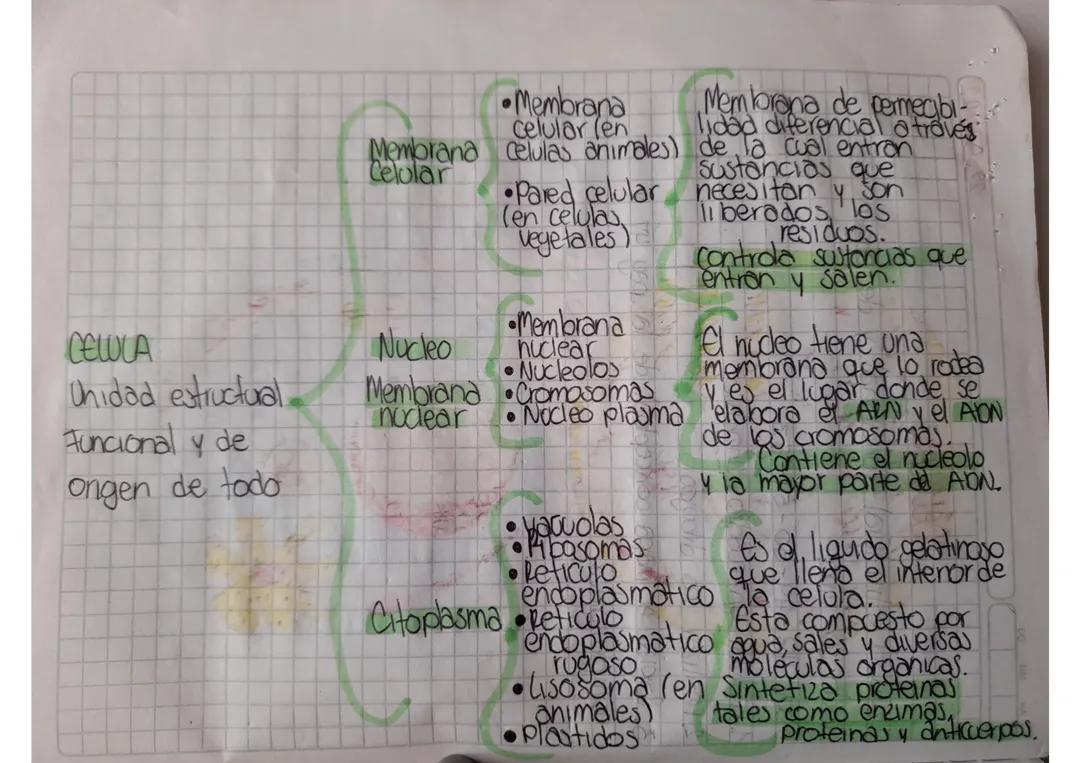 CELULA
Unidad estructural
Funcional y de
origen de todo
Membrana
Celular
• Membrana
celular (en
celulas animales)
• Pared celular
(en celulas
vegetales)
Membrana de permeabi-
lidad diferencial a través
de la cual entran
sustancias que
necesitan y son
liberados los
residuos.
Controla sustancias que
entran y salen.
Nucleo
Membrana
nuclear
• Membrana
nuclear
• Nucleolos
• Cromosomas
• Nucleo plasma
El nucleo tiene una
membrana que lo rodea
y es el lugar donde se
elabora el ARN y el ADN
de los cromosomas.
Contiene el nucleolo
y la mayor parte de ADN.
Citoplasma
• Vacuolas
• Ribosomas
• Reticulo
endoplasmatico
• Reticulo
endoplasmatico
rugoso
• Lisosoma (en
animales)
• Plastidos
Es el liquido gelatinoso
que llena el interior de
la celula.
Esta compuesto por
agua, sales y diversas
moleculas organicas.
Sintetiza proteinas
tales como enzimas,
proteinas y anticuerpos.